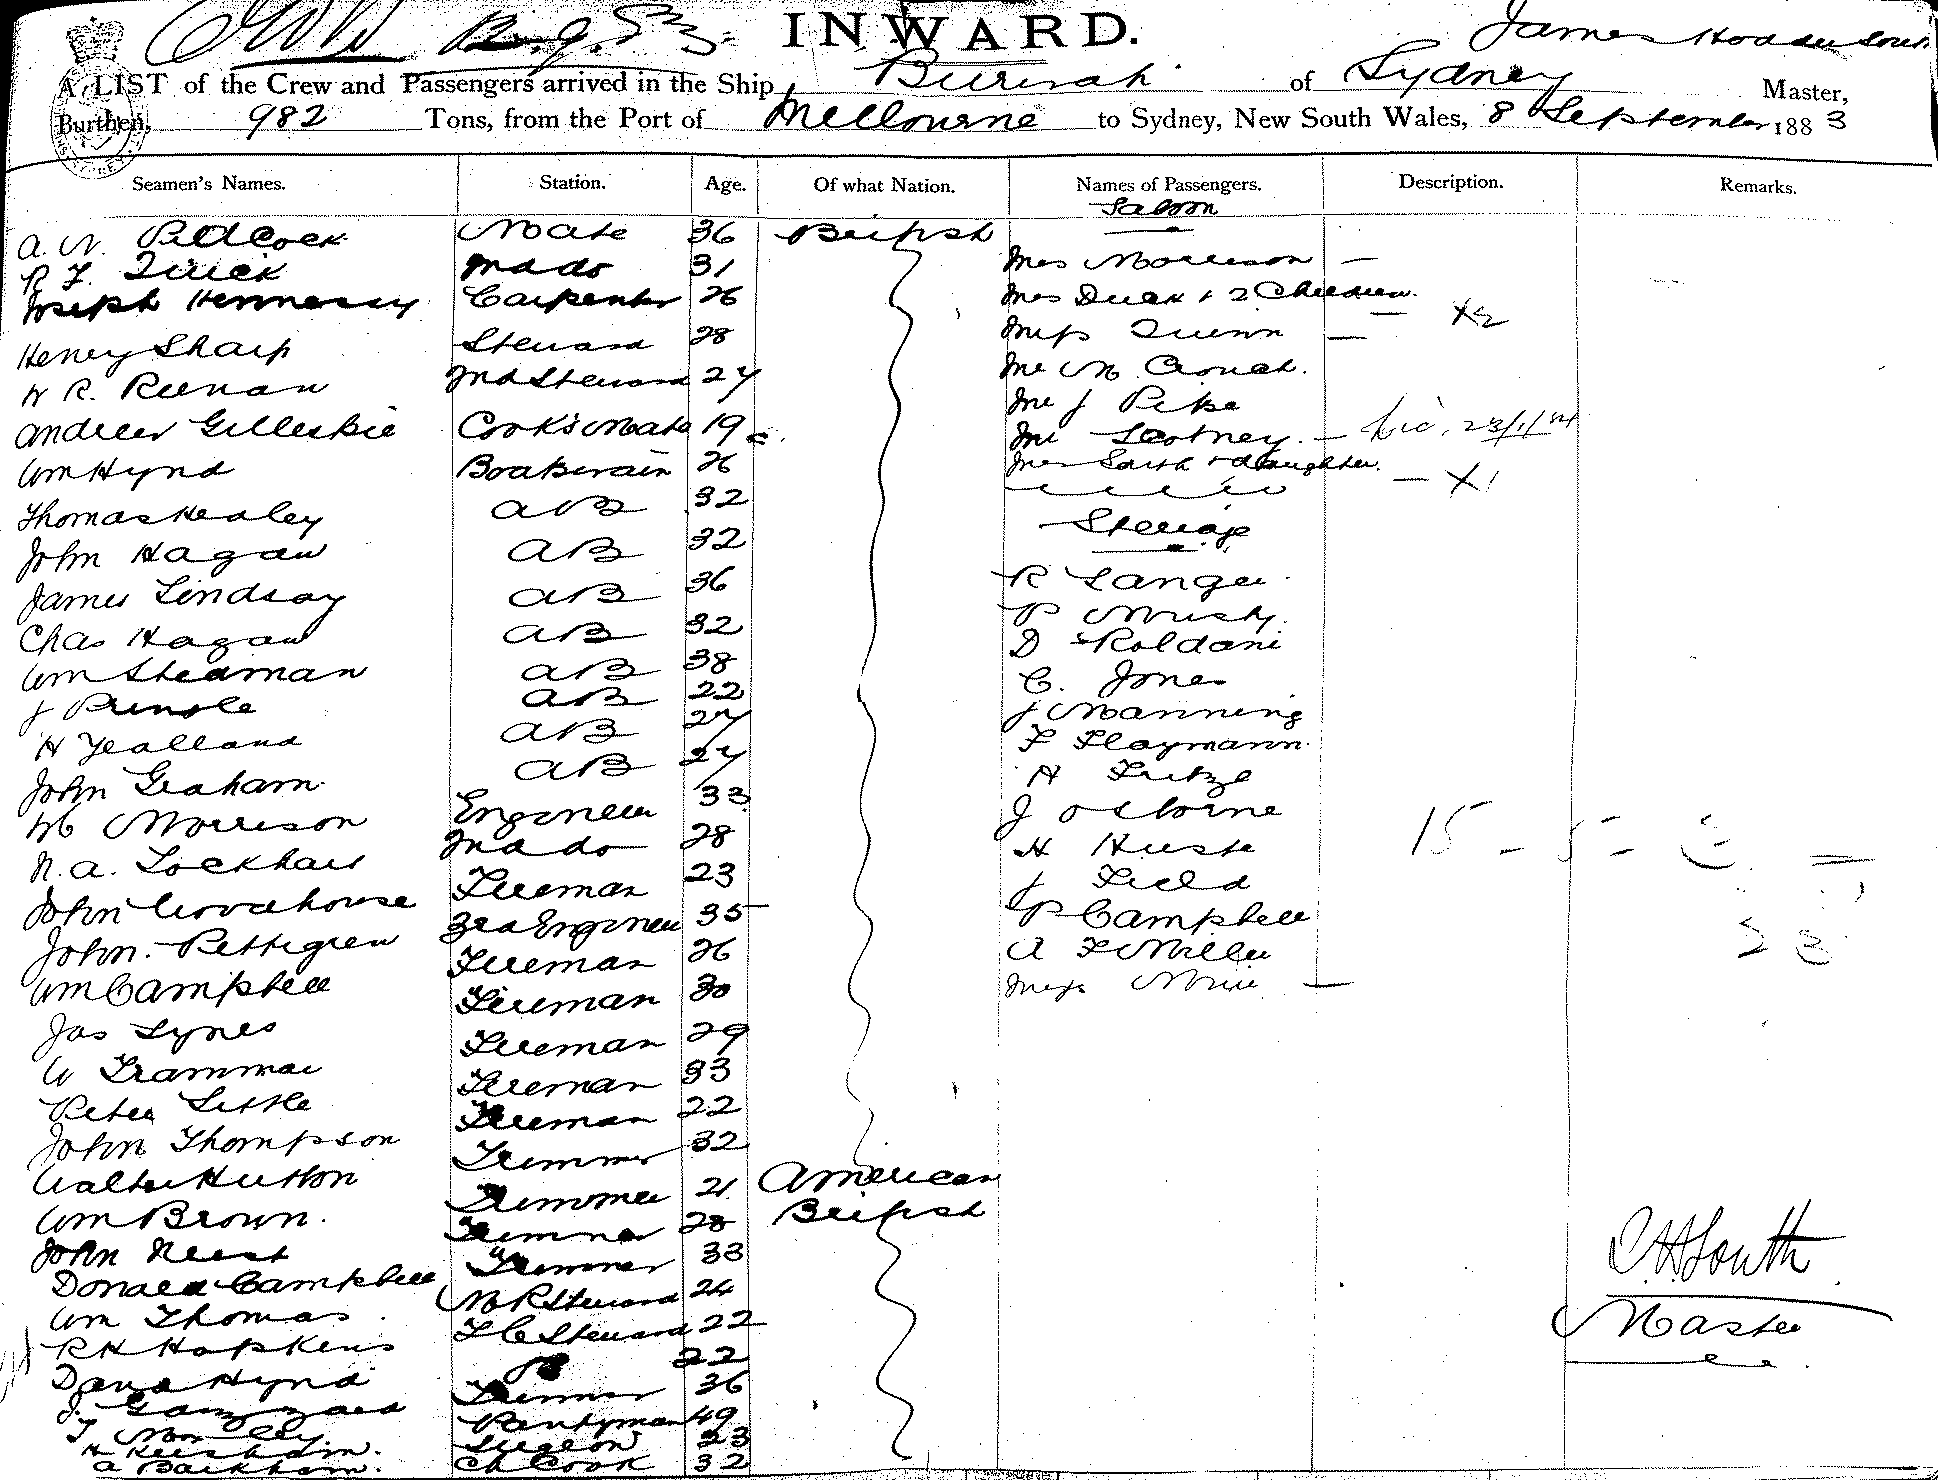 INWARD.
A LIST of the Crew and Passengers arrived in the Ship Burwah of Sydney James Master,
Burthen, 982 Tons, from the Port of Melbourne to Sydney, New South Wales, 8 September 1883
Seamen's Names. Station. Age. Of what Nation. Names of Passengers. Description. Remarks.
Saloon
A. N. Pidcock Mate 36 British
R F. Quick 2nd do 31 Mrs Morrison —
Joseph Hennessy Carpenter 26 Mrs Quick + 2 Children — X2
Henry Sharp Steward 28 Miss Quinn —
W R. Reenan 2nd Steward 27 Mr M Crouch.
Mr J Pike
Andrew Gilleskie Cook's Mate 19 Mr —
Wm Hynd Boatswain 26 Mrs + daughter. — X1
Thomas Healey AB 32
Steerage
John Hagan AB 32
James Lindsay AB 36 R Langer
Chas Hagan AB 32 P
Wm Stedman AB 38 D Roldani
J Pringle AB 22 C. Jones
H Yealland AB 27 J Manning
John Graham AB 27 F Flaymann
W Morrison Engineer 33 H Fritze
N. A. Lockhart 2nd do 28 J Osborne
John Fireman 23 H 15 - 5 -
John Pettigrew 3rd Engineer 35 J Field
Wm Campbell Fireman 26 P Campbell
Jas Lynes Fireman 30 A F Miller 23
W Trammar Fireman 29 Miss —
Peter Little Fireman 33
John Thompson Fireman 22
Walter Hutton Trimmer 32
Wm Brown. Trimmer 21 American
John Trimmer 28 British
Donald Campbell Trimmer 33
Wm Thomas Steward 24
R H Hopkins F C Steward 22
David Hynd 22
J. Gazzard Trimmer 36
T Pantryman 49
H Surgeon 23
A Barkham. Ch Cook 32
C H South
Master